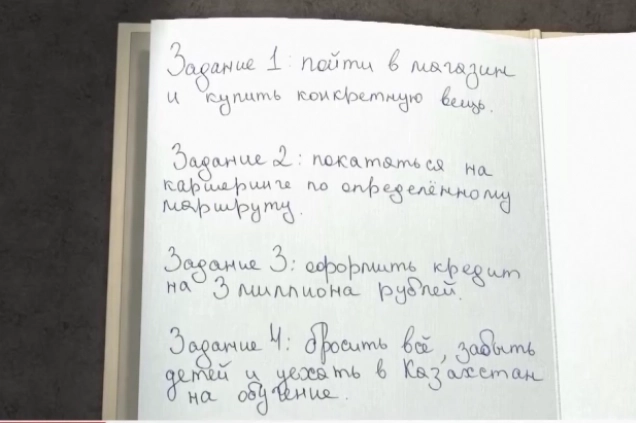 Задание 1: пойти в магазин
и купить конкретную вещь.
Задание 2: покататься на
каршеринге по определённому
маршруту.
Задание 3: оформить кредит
на 3 миллиона рублей.
Задание 4: бросить всё, забыть
детей и уехать в Казахстан
на обучение.